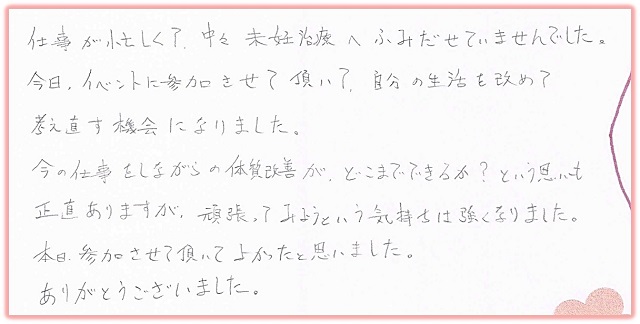 仕事が忙しくて、中々未妊治療へふみだせていませんでした。
今日、イベントに参加させて頂いて、自分の生活を改めて
考え直す機会になりました。
今の仕事をしながらの体質改善が、どこまでできるか？という思いも
正直ありますが、頑張ってみようという気持ちは強くなりました。
本日、参加させて頂いてよかったと思いました。
ありがとうございました。